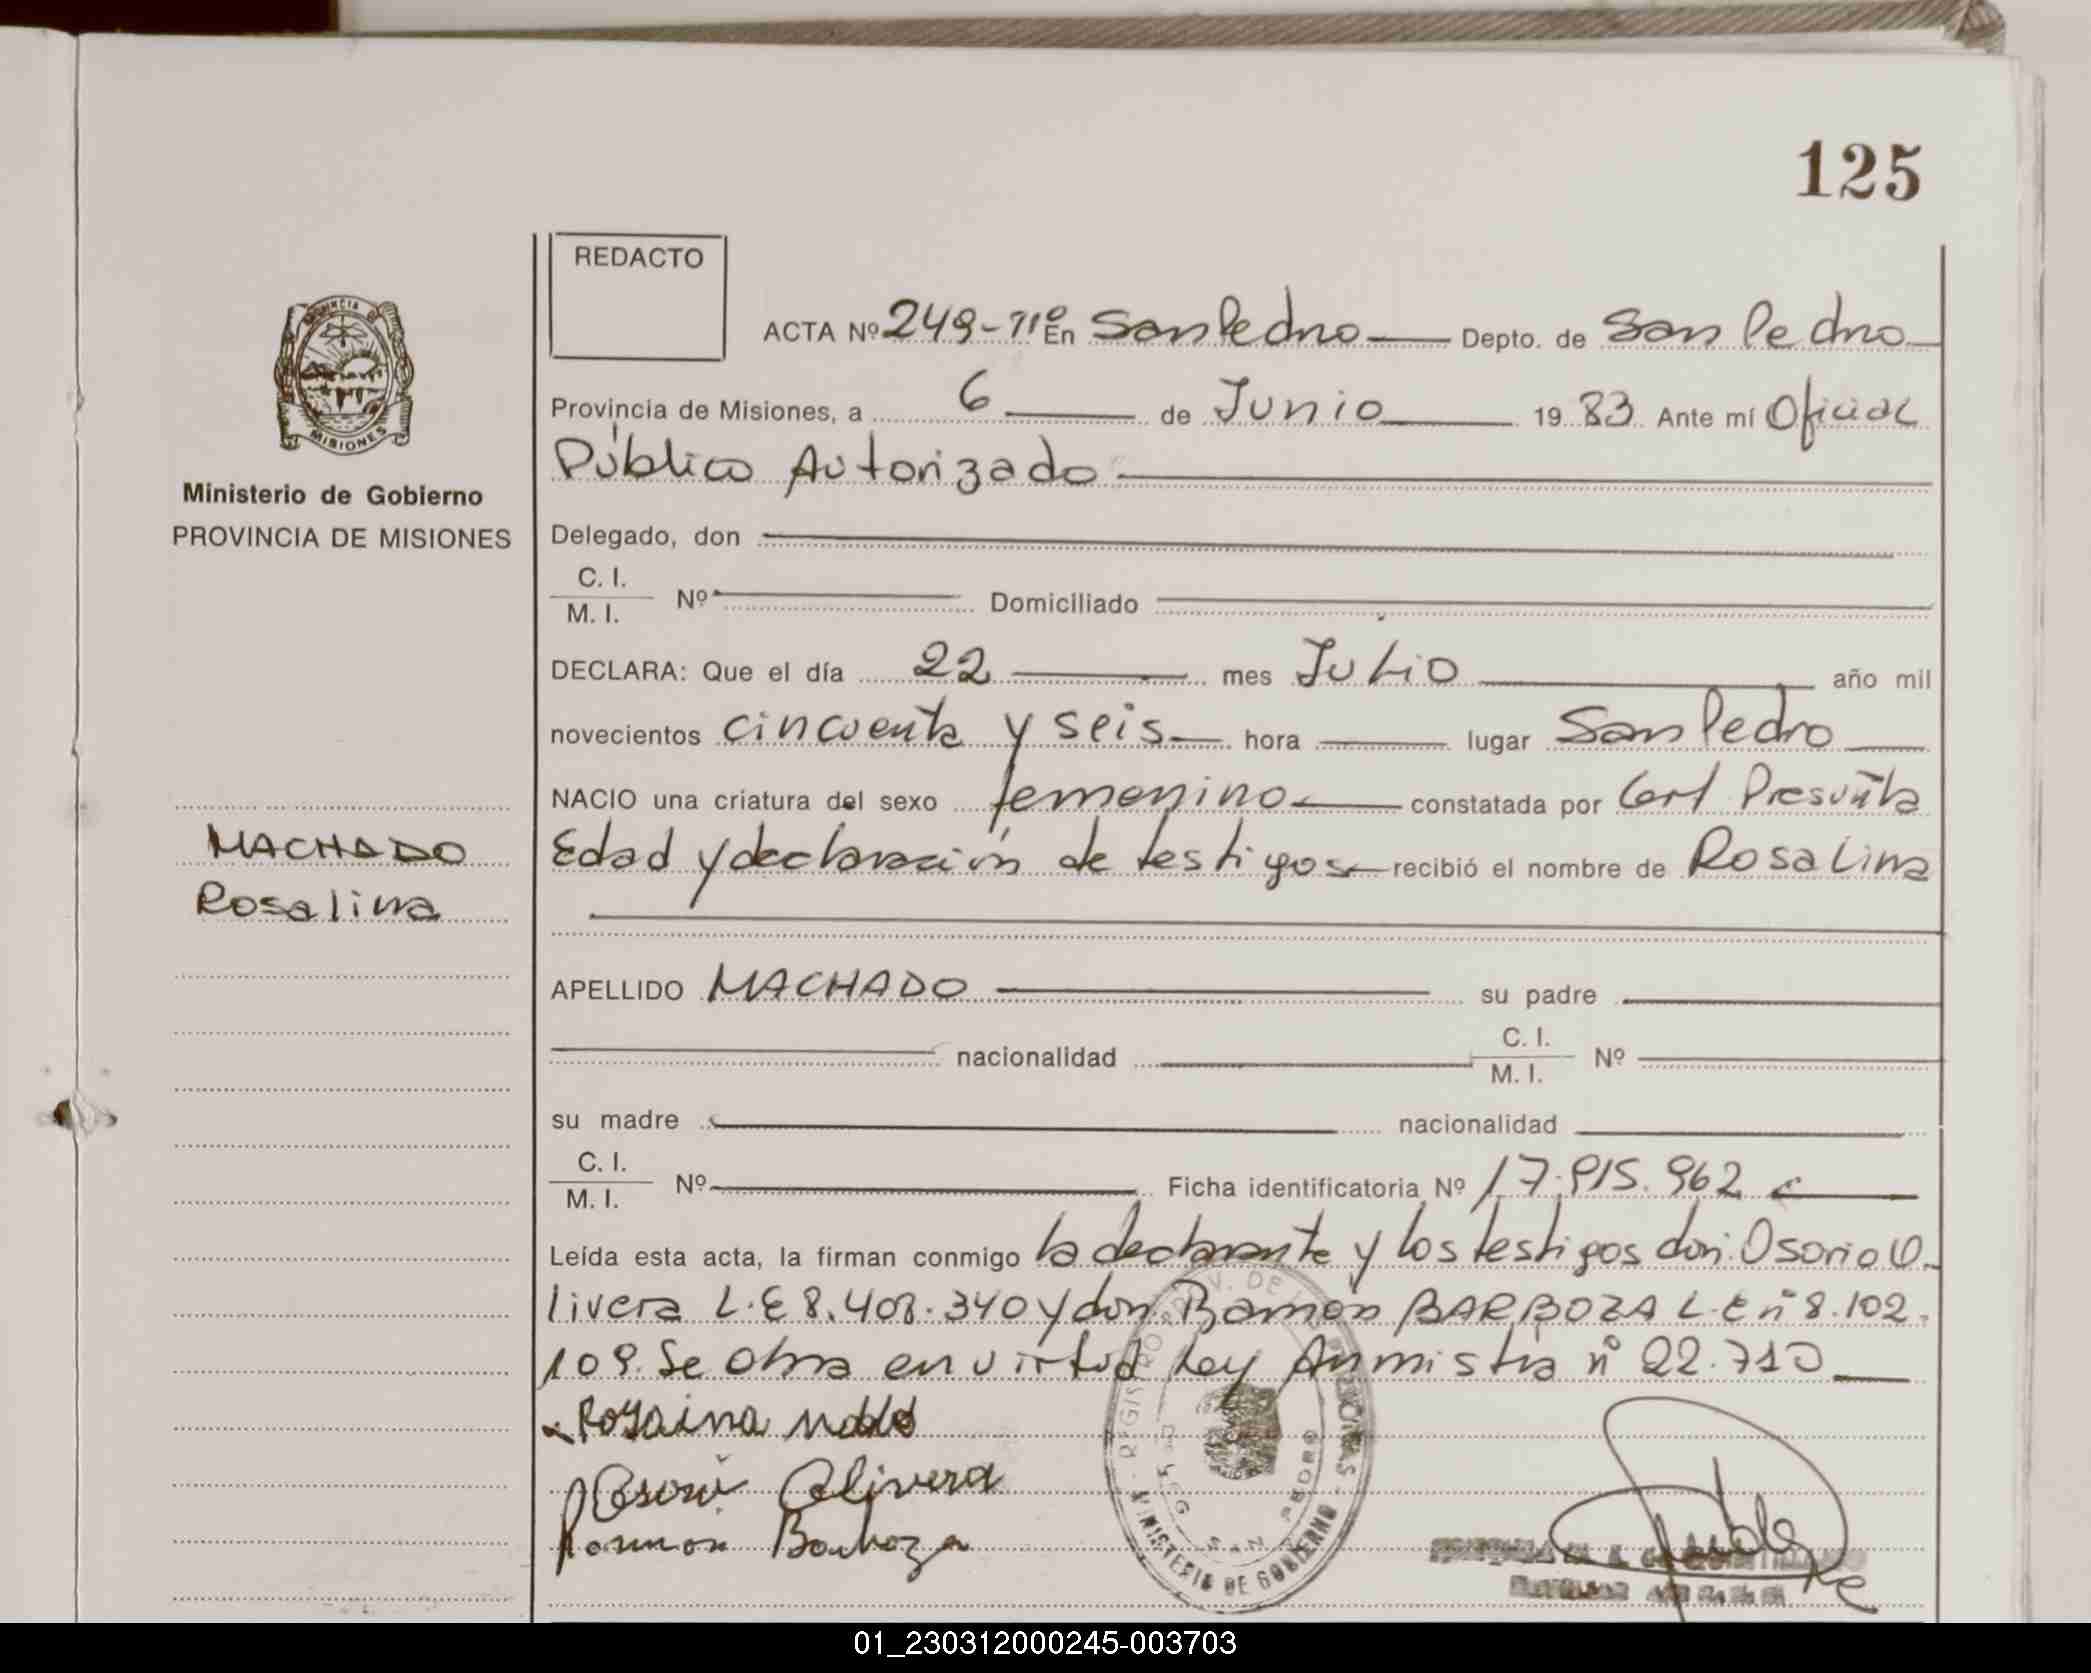 125
REDACTO
ACTA Nº 249-11º En San Pedro Depto. de San Pedro
Provincia de Misiones, a 6 de Junio 1983 Ante mí Oficial
Público Autorizado
PROVINCIA
MISIONES
Ministerio de Gobierno
PROVINCIA DE MISIONES
Delegado, don
C. I.
M. I. Nº Domiciliado
DECLARA: Que el día 22 mes Julio año mil
novecientos cincuenta y seis hora lugar San Pedro
NACIO una criatura del sexo femenino constatada por Cert Presunta
MACHADO
Edad y declaración de testigos recibió el nombre de Rosalina
Rosalina
APELLIDO MACHADO su padre
nacionalidad C. I.
M. I. Nº
su madre nacionalidad
C. I.
M. I. Nº Ficha identificatoria Nº 17.915.962
Leída esta acta, la firman conmigo la declarante y los testigos don: Osorio O
livera L.E 8.408.340 y don Ramon BARBOZA L.E nº 8.102.
109. Se obra en virtud Ley Anmistia nº 22.710
Olivera
Ramon Barboza
MINISTERIO DE GOBIERNO
SAN PEDRO
01_230312000245-003703